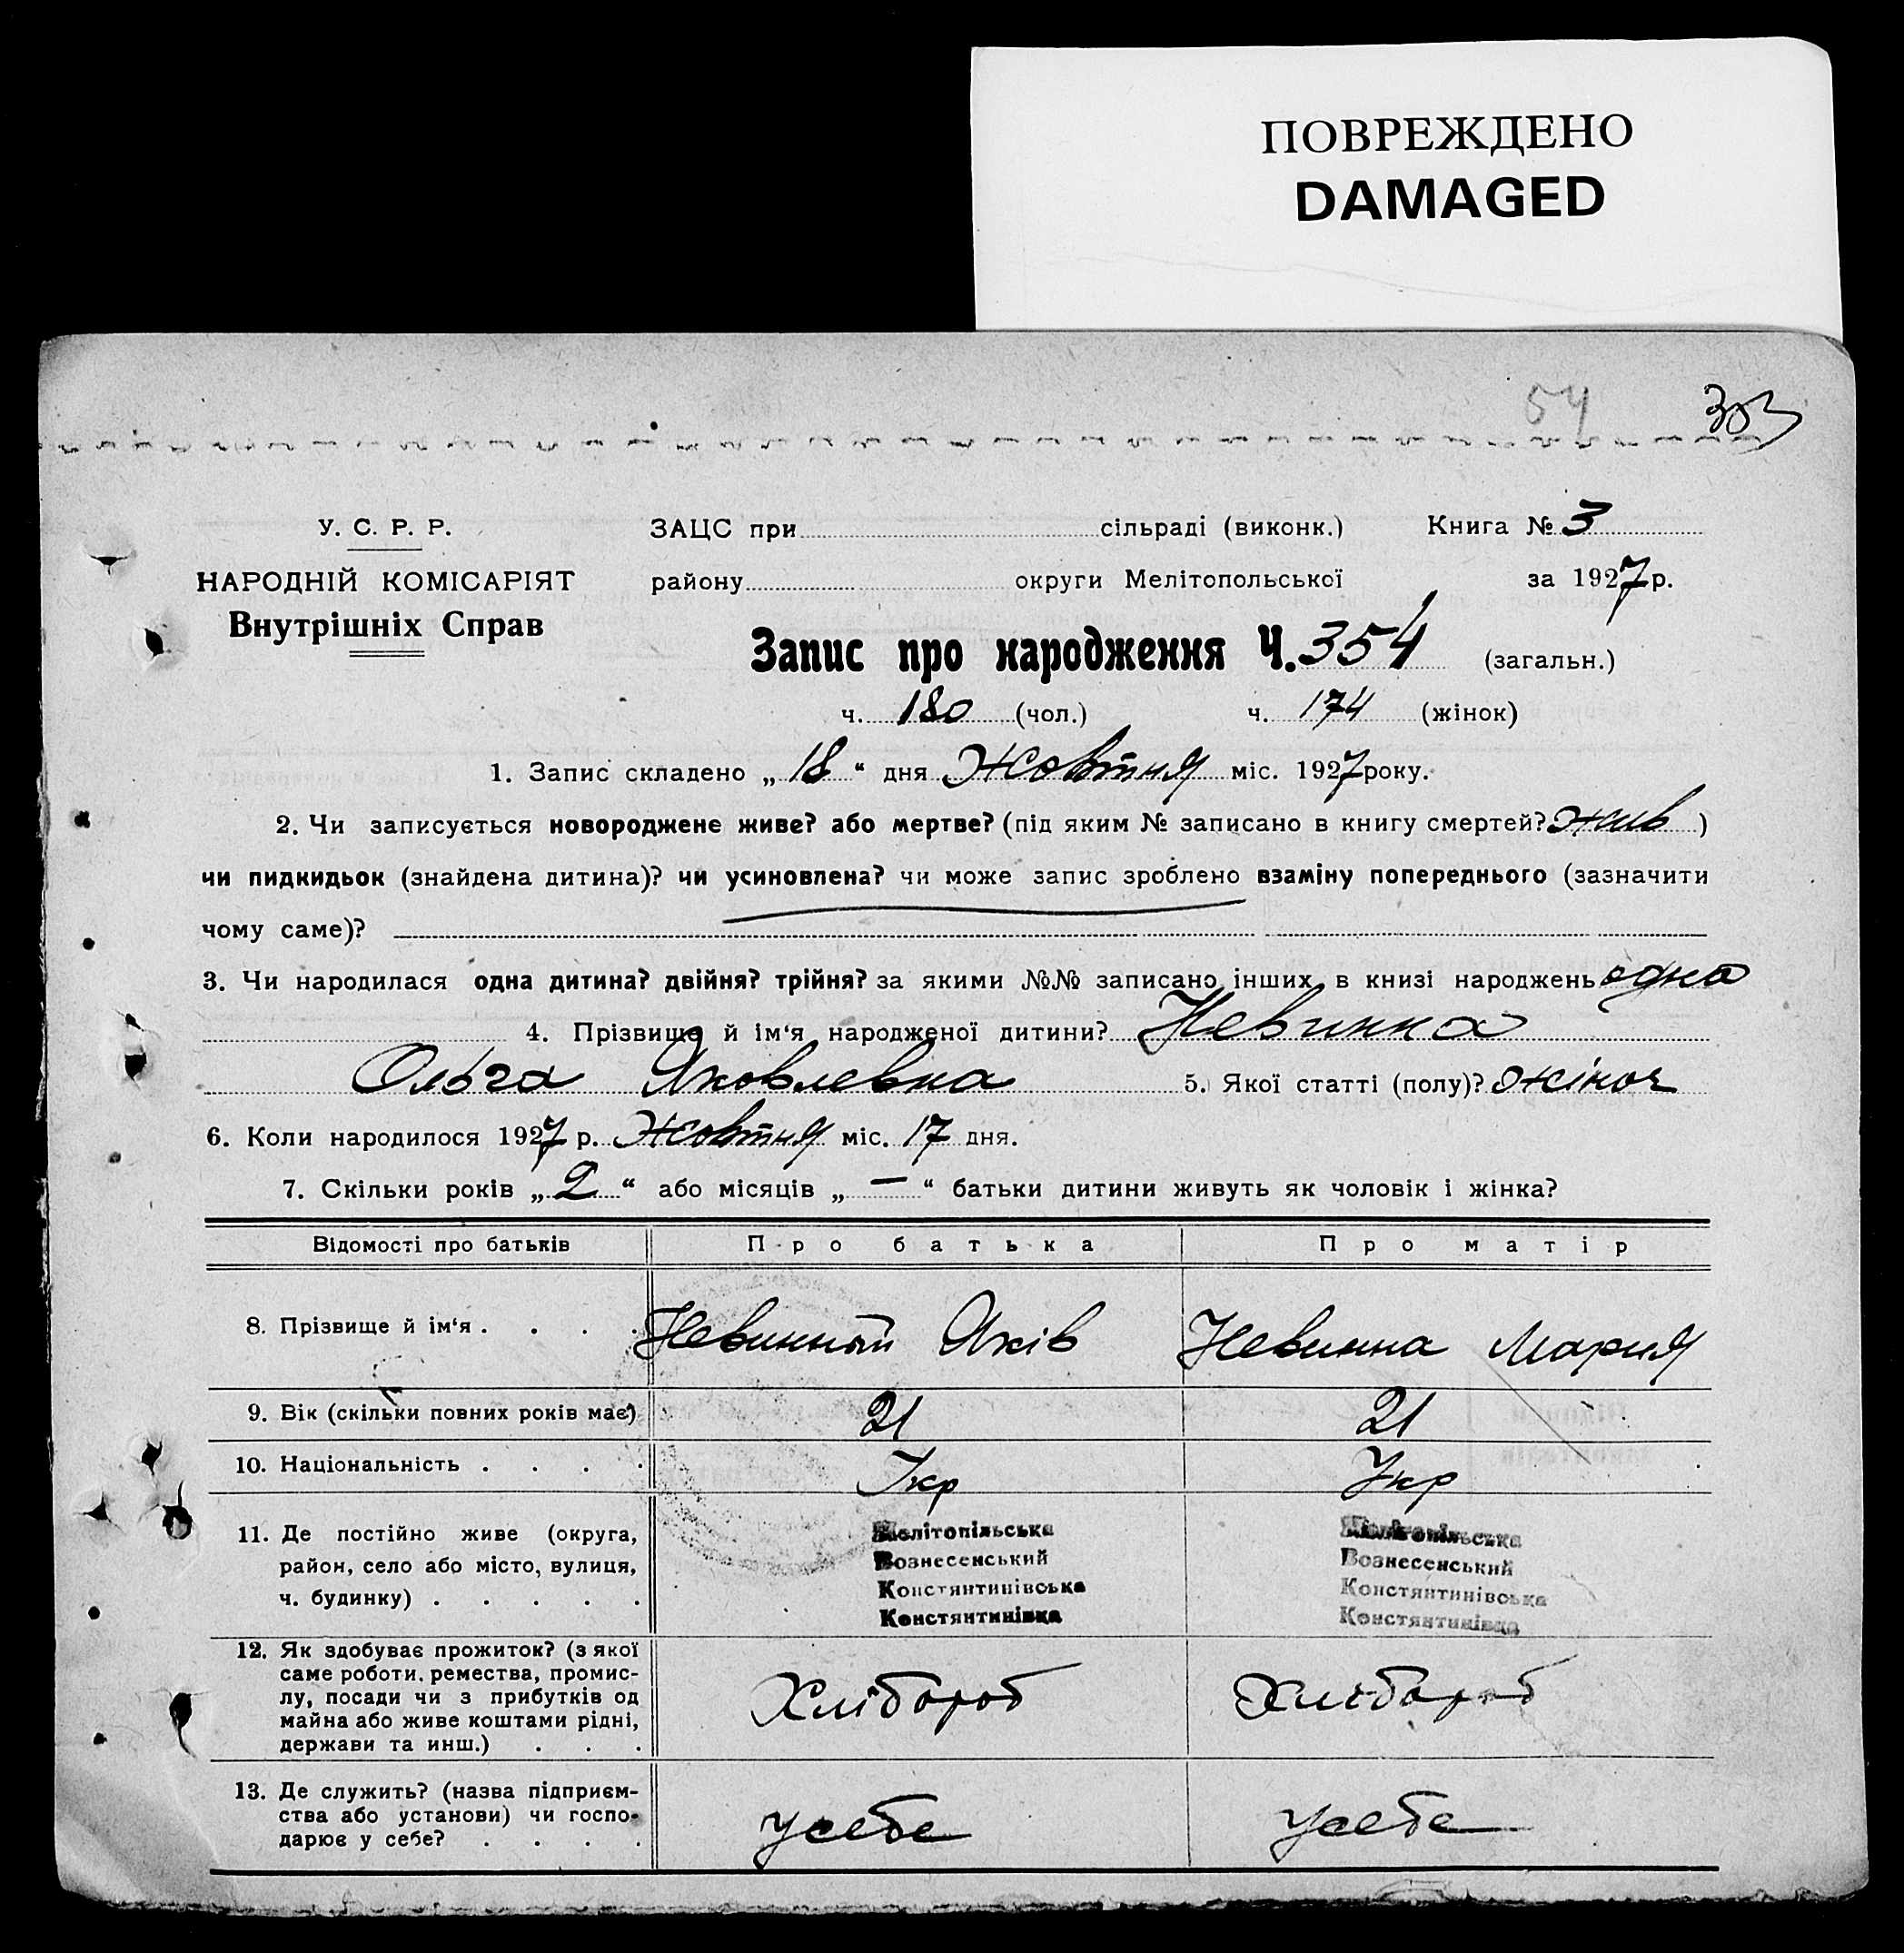 ПОВРЕЖДЕНО
DAMAGED
54 303
У. С. Р. Р.
НАРОДНІЙ КОМІСАРІЯТ
Внутрішніх Справ
ЗАЦС при сільраді (виконк.) Книга № 3
району округи Мелітопольської за 1927 р.
Запис про народження Ч. 354 (загальн.)
ч. 180 (чол.) ч. 174 (жінок)
1. Запис складено „ 18 “ дня Жовтня міс. 1927 року.
2. Чи записується новороджене живе? або мертве? (під яким № записано в книгу смертей? жив )
чи пидкидьок (знайдена дитина)? чи усиновлена? чи може запис зроблено взаміну попереднього (зазначити
чому саме)?
3. Чи народилася одна дитина? двійня? трійня? за якими №№ записано інших в книзі народжень одна
4. Прізвище й ім‘я народженої дитини? Невинна
Ольга Яковлевна 5. Якої статті (полу)? жіноч
6. Коли народилося 1927 р. Жовтня міс. 17 дня.
7. Скільки років „ 2 “ або місяців „ — “ батьки дитини живуть як чоловік і жінка?
Відомості про батьків Про батька Про матір
8. Прізвище й ім‘я . . . . Невинный Яків Невинна Мария
9. Вік (скільки повних років має) 21 21
10. Національність . . . . Укр Укр
11. Де постійно живе (округа,
район, село або місто, вулиця,
ч. будинку) . . . . .
Мелітопільська
Вознесенський
Констянтинівська
Констянтинівка
Мелітопільська
Вознесенський
Констянтинівська
Констянтинівка
12. Як здобуває прожиток? (з якої
саме роботи, ремества, промис-
лу, посади чи з прибутків од
майна або живе коштами рідні,
держави та инш.) . . .
Хлібороб Хлібороб
13. Де служить? (назва підприєм-
ства або установи) чи госпо-
дарює у себе? . . . .
усебе усебе